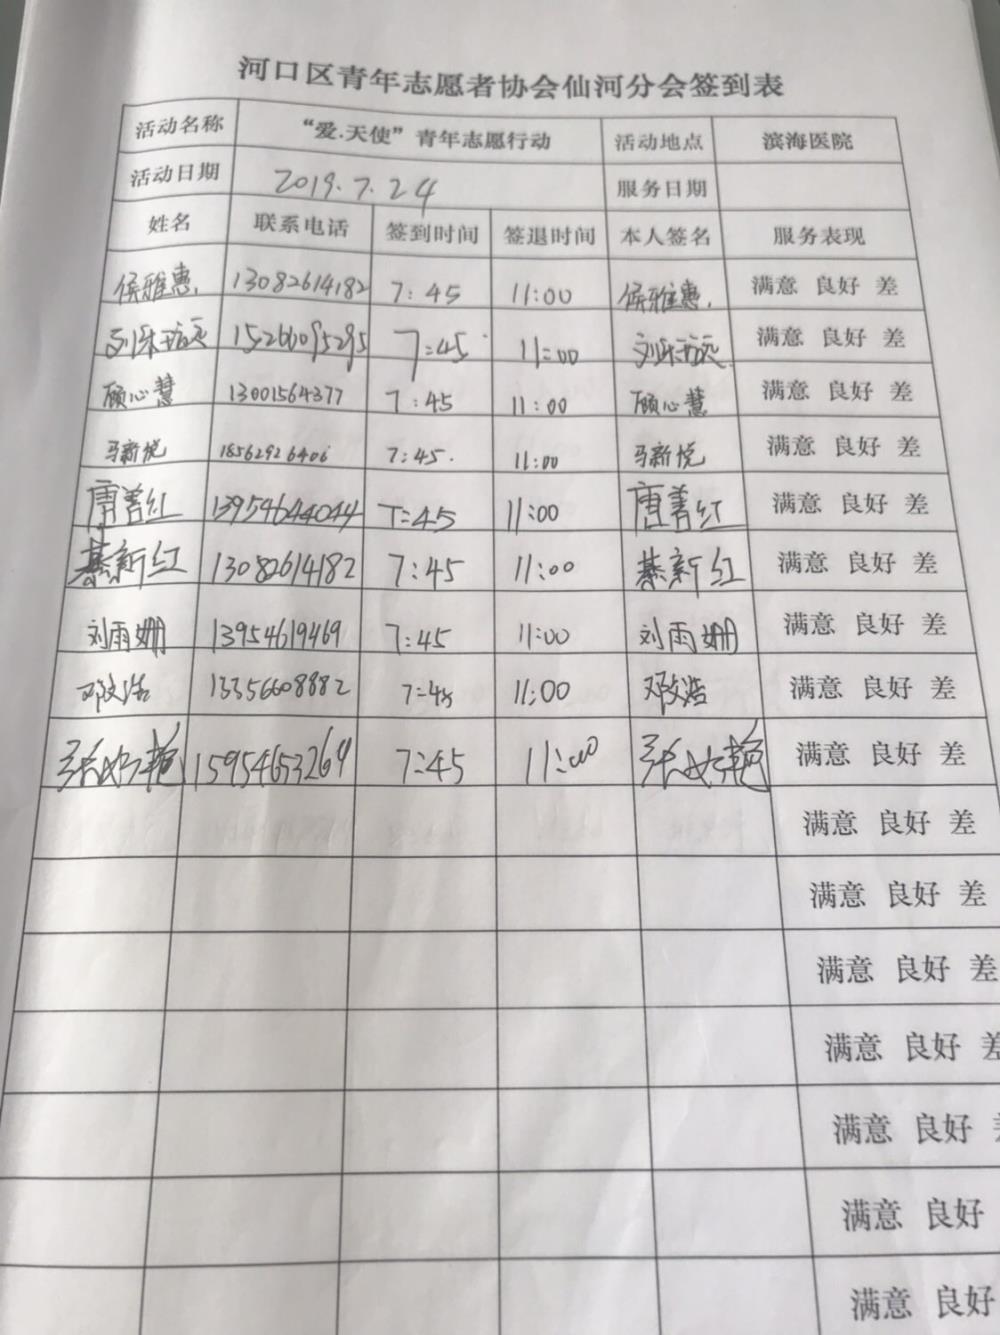 河口区青年志愿者协会仙河分会签到表
活动名称 “爱.天使”青年志愿行动 活动地点 滨海医院
活动日期 2019.7.24 服务日期
姓名 联系电话 签到时间 签退时间 本人签名 服务表现
侯雅惠. 13082614182 7:45 11:00 侯雅惠. 满意 良好 差
15266095295 7:45 11:00 满意 良好 差
顾心慧 13001564377 7:45 11:00 顾心慧 满意 良好 差
马新悦 18562926406 7:45. 11:00 马新悦 满意 良好 差
唐善红 13954644044 7:45 11:00 唐善红 满意 良好 差
綦新红 13082614182 7:45 11:00 綦新红 满意 良好 差
刘雨姗 13954619469 7:45 11:00 刘雨姗 满意 良好 差
邓文浩 13356608882 7:45 11:00 邓文浩 满意 良好 差
15954653264 7:45 11:00 满意 良好 差
满意 良好 差
满意 良好 差
满意 良好 差
满意 良好 差
满意 良好
满意 良好
满意 良好